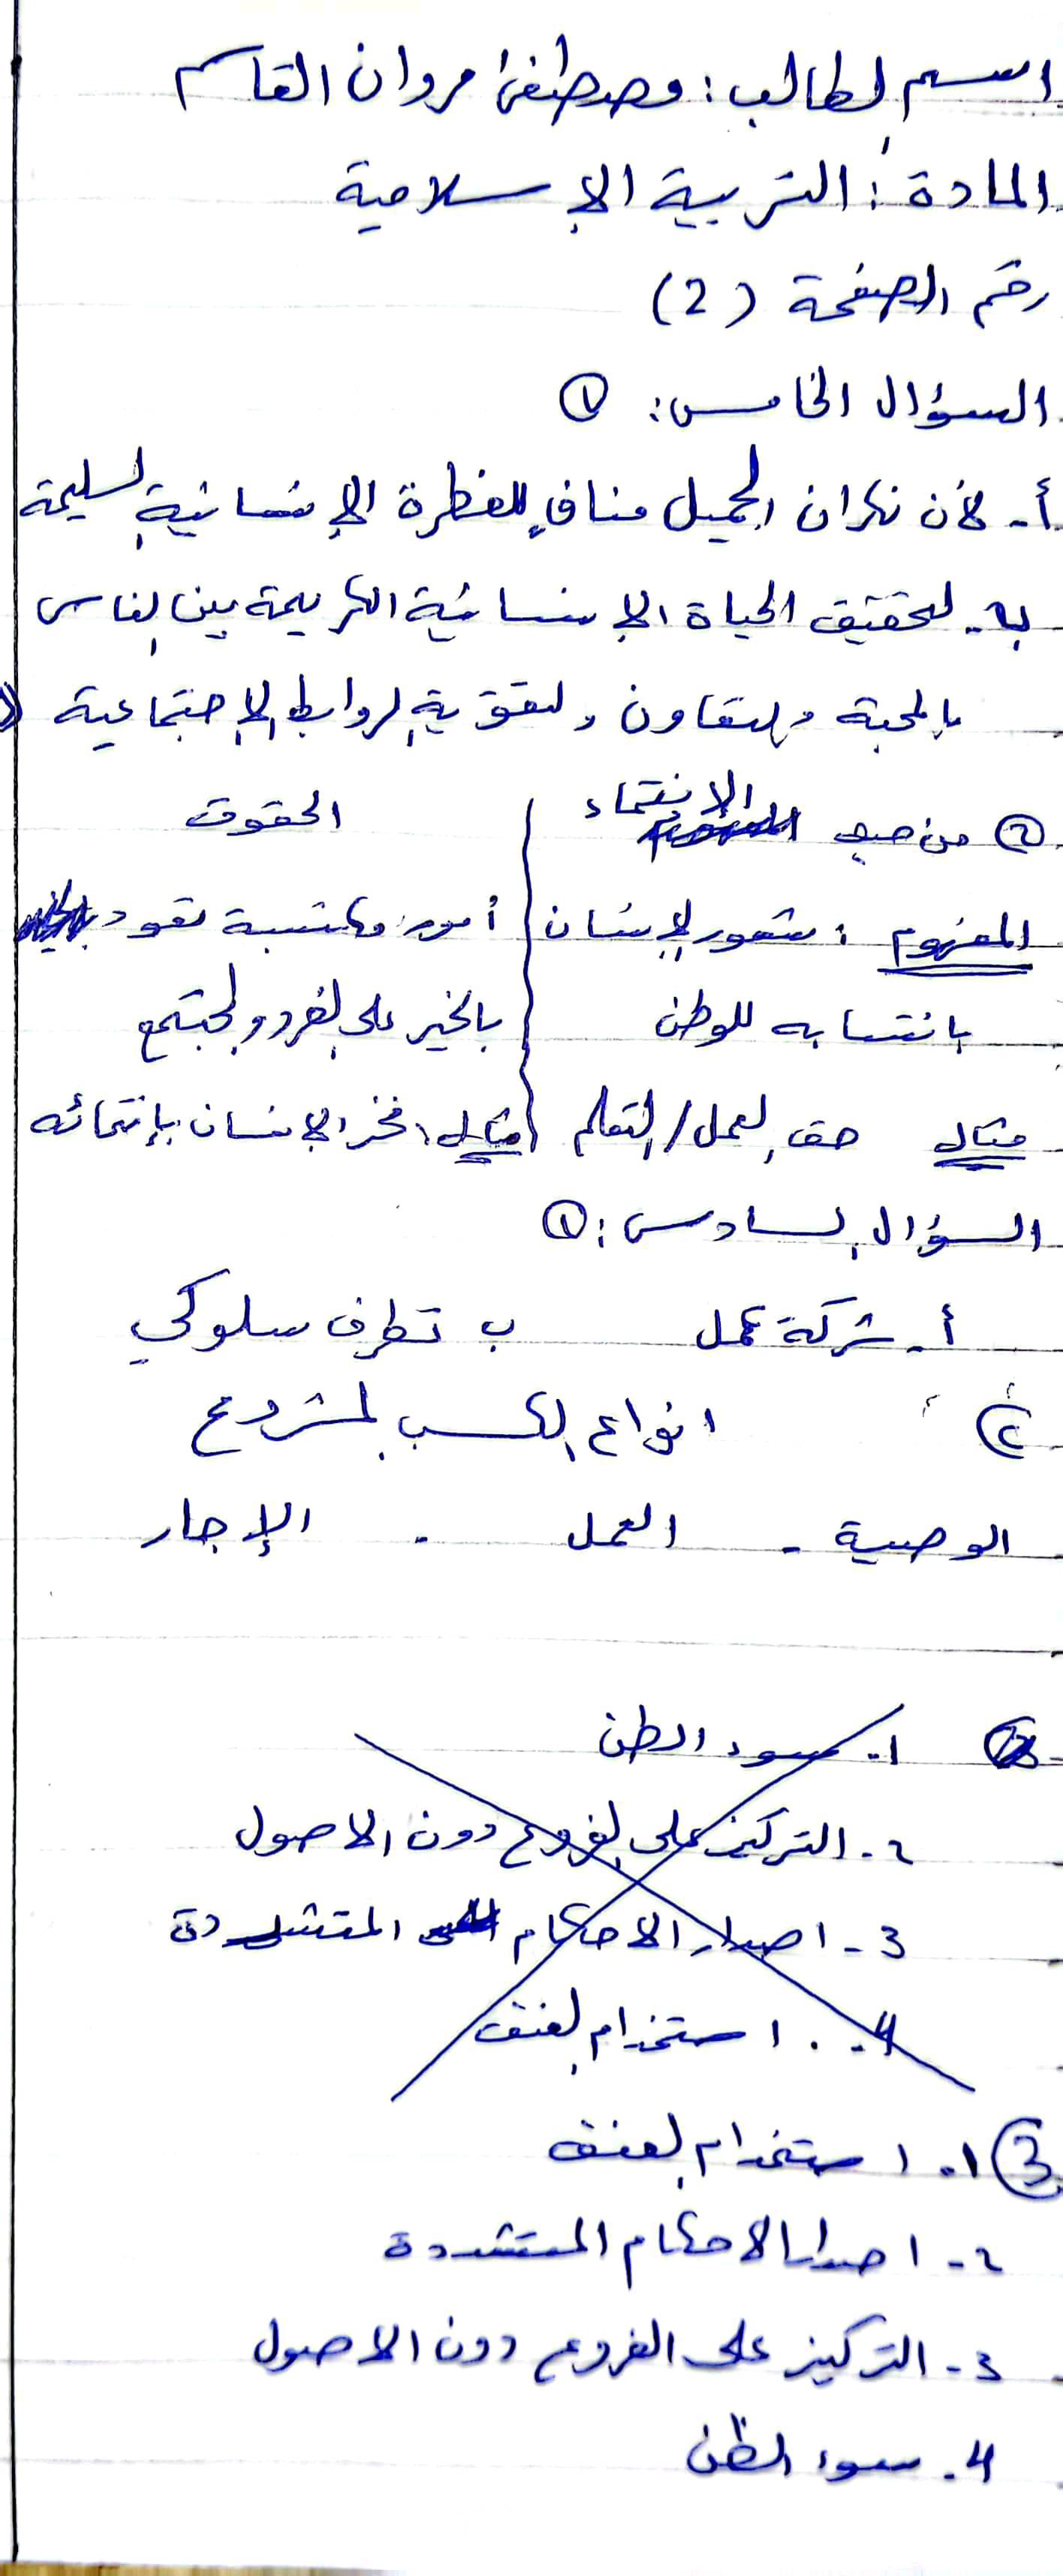 اسم الطالب: مصطفى مروان القاسم
المادة: التربية الإسلامية
رقم الصفحة (2)
السؤال الخامس: ①
أ- لأن نكران الجميل منافٍ للفطرة الإنسانية السليمة
ب- لتحقيق الحياة الإنسانية الكريمة بين الناس
بالمحبة والتعاون ولتقوية الروابط الإجتماعية
② من حيث الانتماء الحقوق
المفهوم: شعور الإنسان أمور مكتسبة تعود
بانتسابه للوطن بالخير على الفرد والمجتمع
مثال حق العمل/التعلم مثال: فخر الانسان بإنتمائه
السؤال السادس: ①
أ- شركة عمل ب تطرف سلوكي
② انواع الكسب المشروع
الوصية - العمل - الإجار
1- سوء الظن
2- التركيز على الفروع دون الاصول
3- اصدار الاحكام المتشددة
4- استخدام العنف
③ 1. استخدام العنف
2- اصدار الاحكام المتشددة
3- التركيز على الفروع دون الاصول
4. سوء الظن